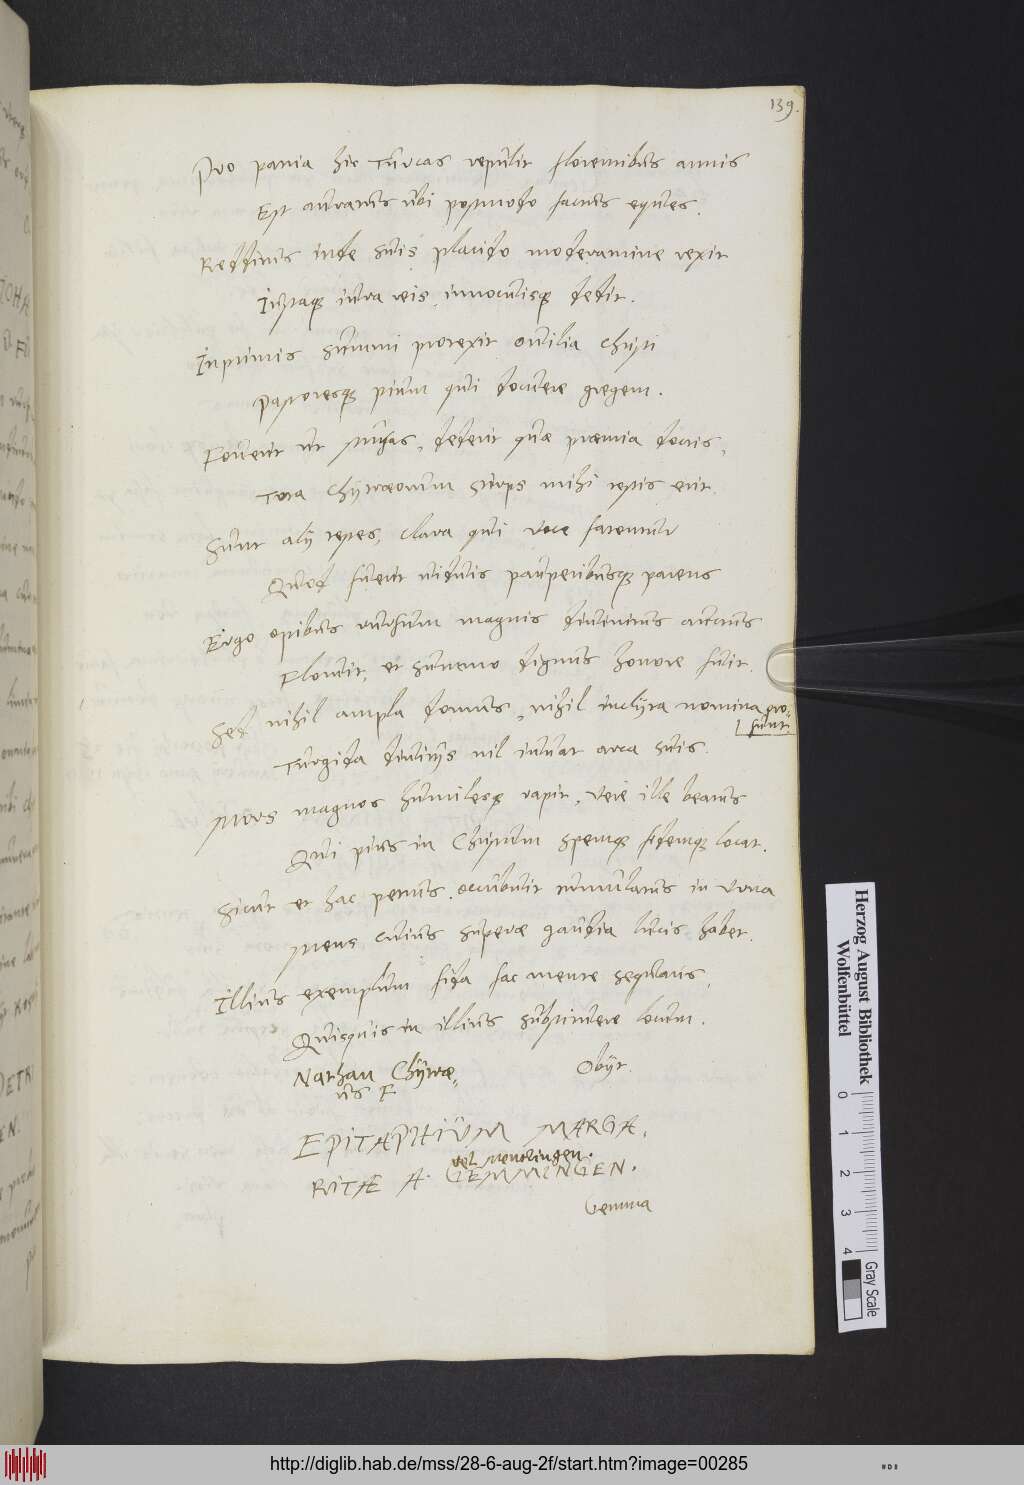 139.
Pro patria hic Turcas repulit florentibus annis
Est auratus ubi postmodo factus eques.
Redditus inde suis placido moderamine rexit
Iustaque iura reis, innocuisque dedit.
Inprimis summi prorexit ovilia Christi
Pastoresque pium qui docuere gregem.
Foverit ut Musas, dederit quae praemia doctis,
Tota Chytraeorum stirps mihi testis erit.
Sunt alij testes, clara qui voce fatentur
Quod fuerit viduis pauperibusque parens
Ergo opibus rursum magnis divinitus auctus
Floruit, et summo dignus honore fuit.
Sed nihil ampla domus, nihil inclyta nomina pro-
sunt.
Turgida divitijs nil iuvat arca suis.
Mors magnos humilesque rapit, vere ille beatus
Qui pius in Christum spemque fidemque locat.
Sicut et hac Petrus occubuit tumulatus in urna
Mens cuius superae gaudia lucis habet.
Illius exemplum fida fac mente sequaris,
Quisquis in illius subsistere locum.
Nathan Chytrae,
us F
Obijt.
EPITAPHIUM MARGA,
vel Mentzingen.
RITAE A. GEMMINGEN.
Gemma
Herzog August Bibliothek
Wolfenbüttel
0 1 2 3 4
Gray Scale
http://diglib.hab.de/mss/28-6-aug-2f/start.htm?image=00285